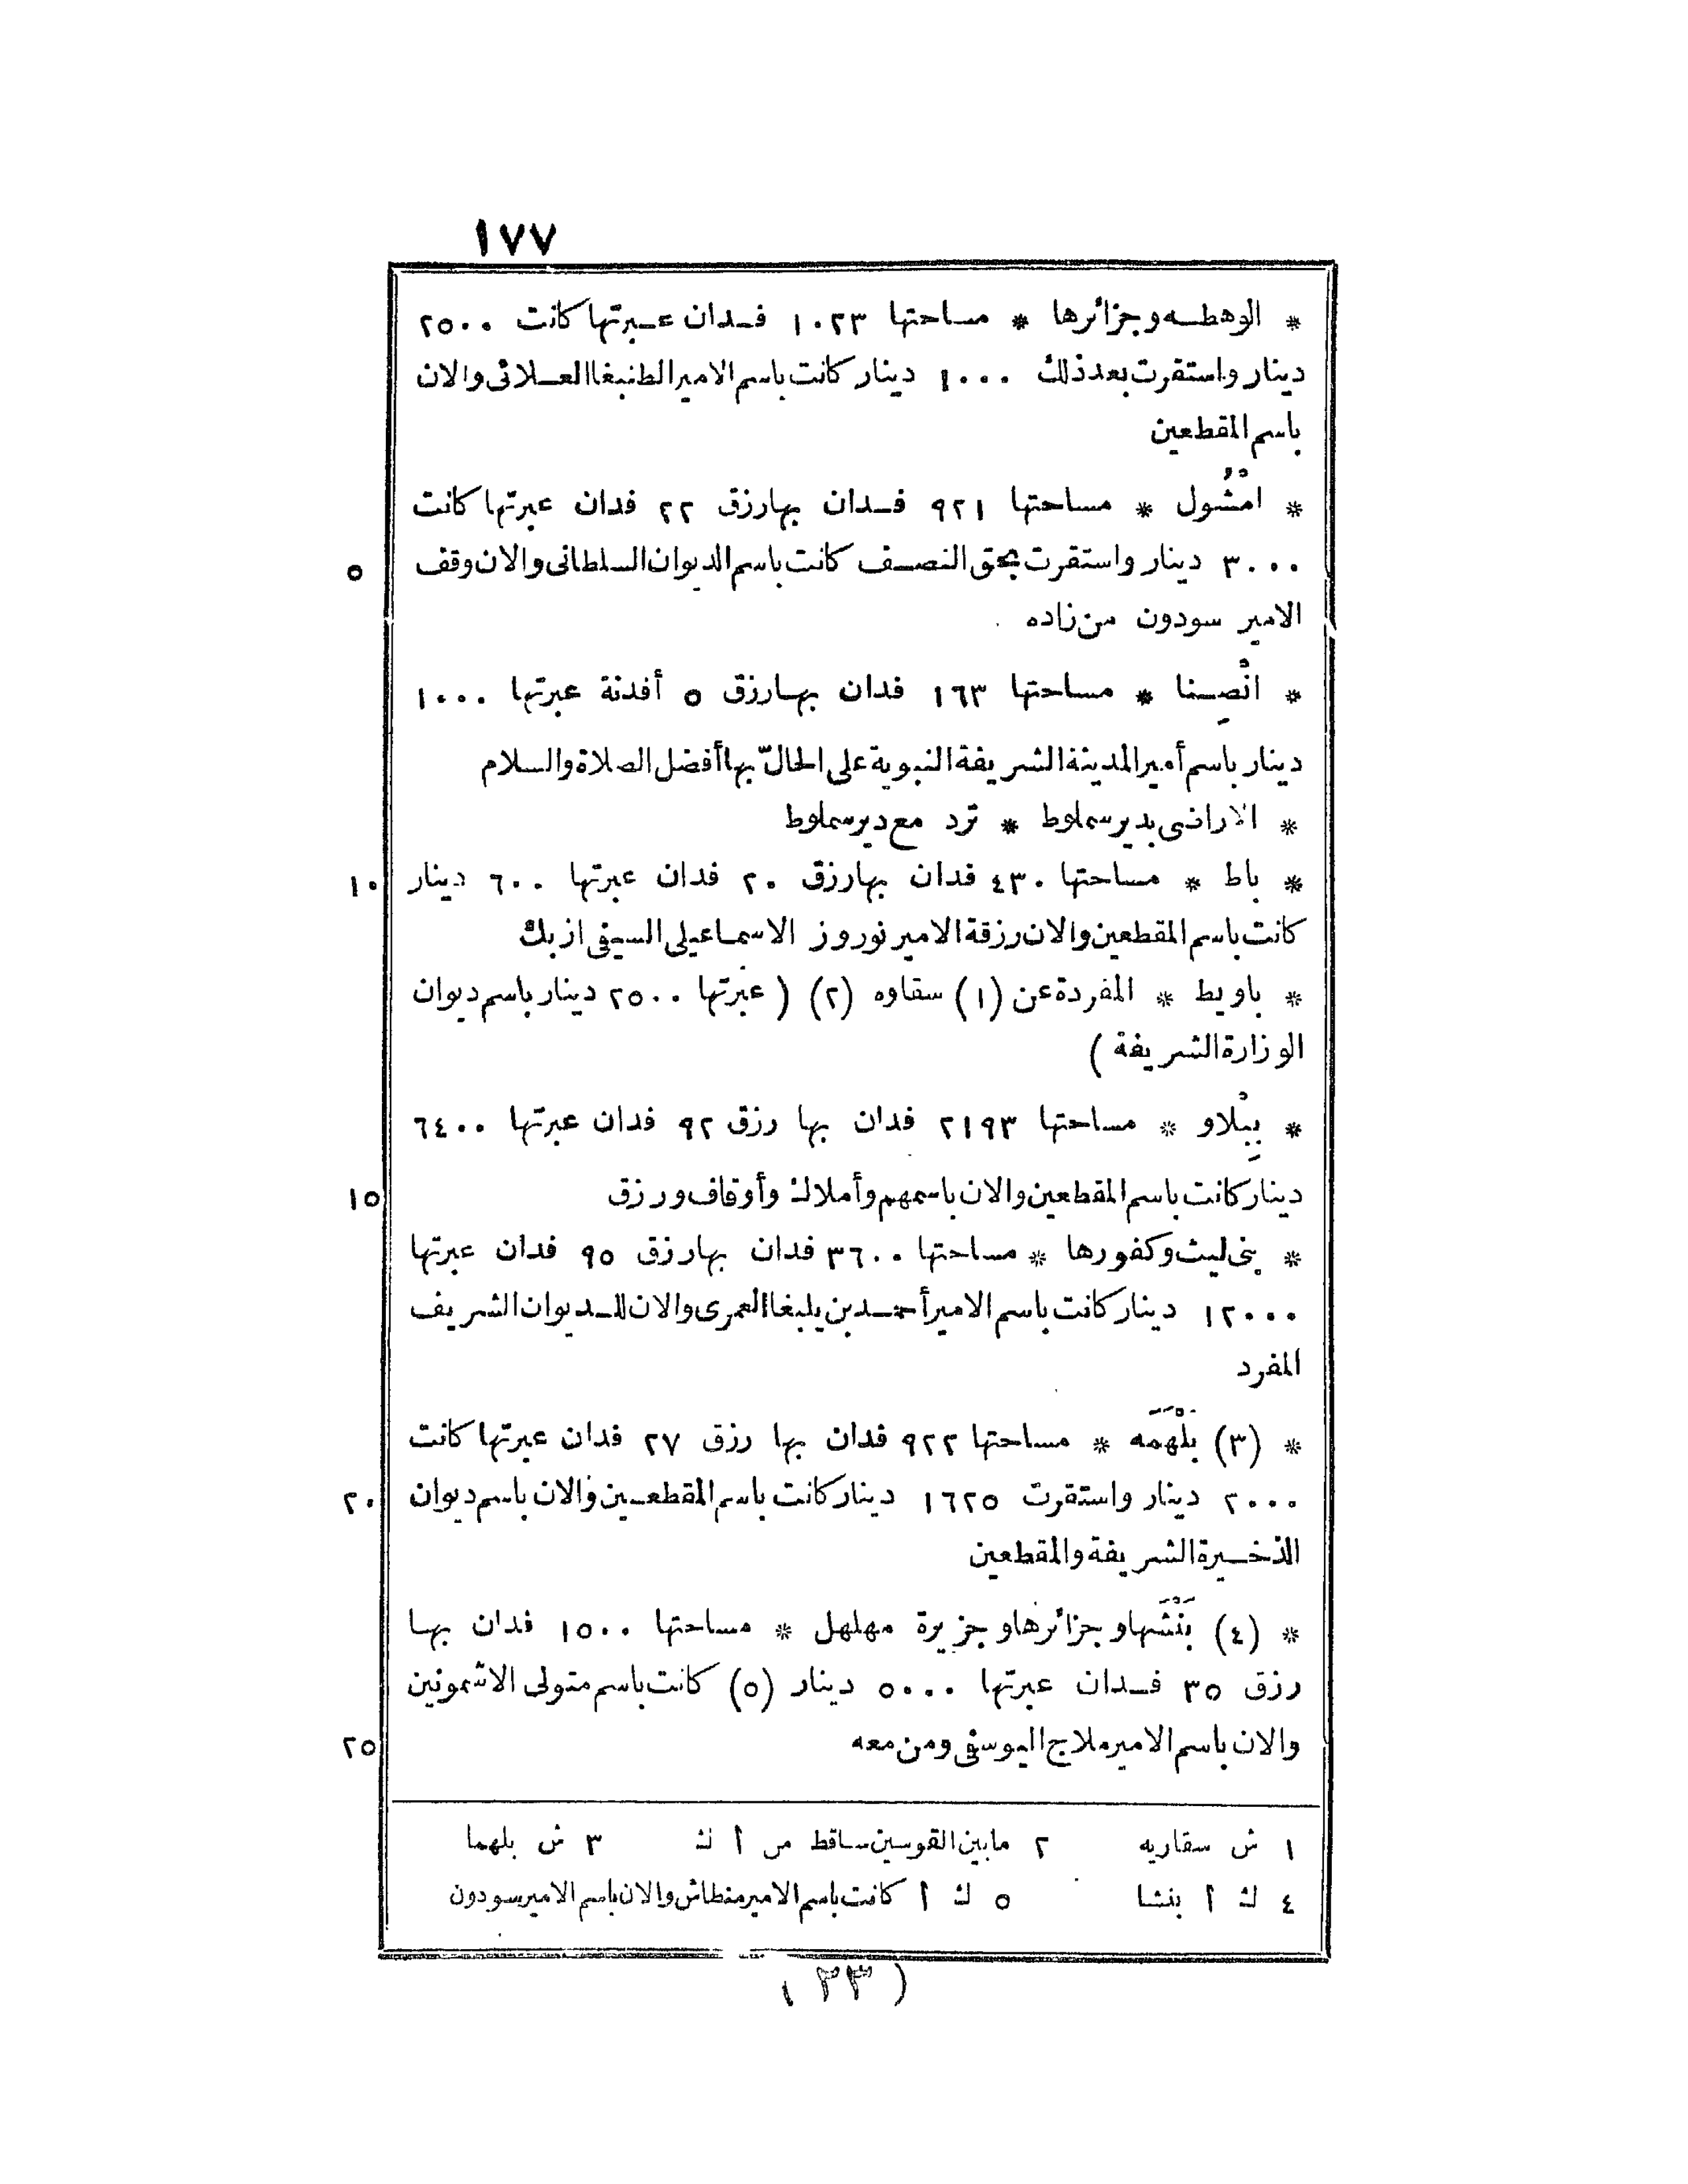 ١٧٧
* الوهطه وجزائرها * مساحتها ١٠٢٣ فدان عبرتها كانت ٢٥٠٠
دينار واستقرت بعد ذلك ١٠٠٠ دينار كانت باسم الامير الطنبغا العلائى والان
باسم المقطعين
* امْشُول * مساحتها ٩٢١ فدان بها رزق ٢٢ فدان عبرتها كانت
٣٠٠٠ دينار واستقرت بحق النصف كانت باسم الديوان السلطانى والان وقف
٥
الامير سودون من زاده
* انْصِنا * مساحتها ١٦٣ فدان بها رزق ٥ أفدنة عبرتها ١٠٠٠
دينار باسم أمير المدينة الشريفة النبوية على الحالّ بها أفضل الصلاة والسلام
* الاراضى بدير سملوط * ترد مع دير سملوط
* باط * مساحتها ٤٣٠ فدان بها رزق ٢٠ فدان عبرتها ٦٠٠ دينار
١٠
كانت باسم المقطعين والان رزقة الامير نوروز الاسماعيلى السيفى ازبك
* باويط * المفردة عن (١) سقاوه (٢) ( عبرتها ٢٥٠٠ دينار باسم ديوان
الوزارة الشريفة )
* بِبْلاو * مساحتها ٢١٩٣ فدان بها رزق ٩٢ فدان عبرتها ٦٤٠٠
دينار كانت باسم المقطعين والان باسمهم وأملاك وأوقاف ورزق
١٥
* بنى ليث وكفورها * مساحتها ٣٦٠٠ فدان بها رزق ٩٥ فدان عبرتها
١٢٠٠٠ دينار كانت باسم الامير أحمد بن يلبغا العمرى والان للديوان الشريف
المفرد
* (٣) بَلْهَمَه * مساحتها ٩٢٢ فدان بها رزق ٢٧ فدان عبرتها كانت
٢٠٠٠ دينار واستقرت ١٦٢٥ دينار كانت باسم المقطعين والان باسم ديوان
٢٠
الذخيرة الشريفة والمقطعين
* (٤) بَنْشَها وجزائرها وجزيرة مهلهل * مساحتها ١٥٠٠ فدان بها
رزق ٣٥ فدان عبرتها ٥٠٠٠ دينار (٥) كانت باسم متولى الاشمونين
والان باسم الامير ملاج اليوسفى ومن معه
٢٥
١ ش سقاريه ٢ مابين القوسين ساقط من أ ك ٣ ش بلهما
٤ ك أ بنشا ٥ ك أ كانت باسم الامير منطاش والان باسم الامير سودون
( ٢٣ )